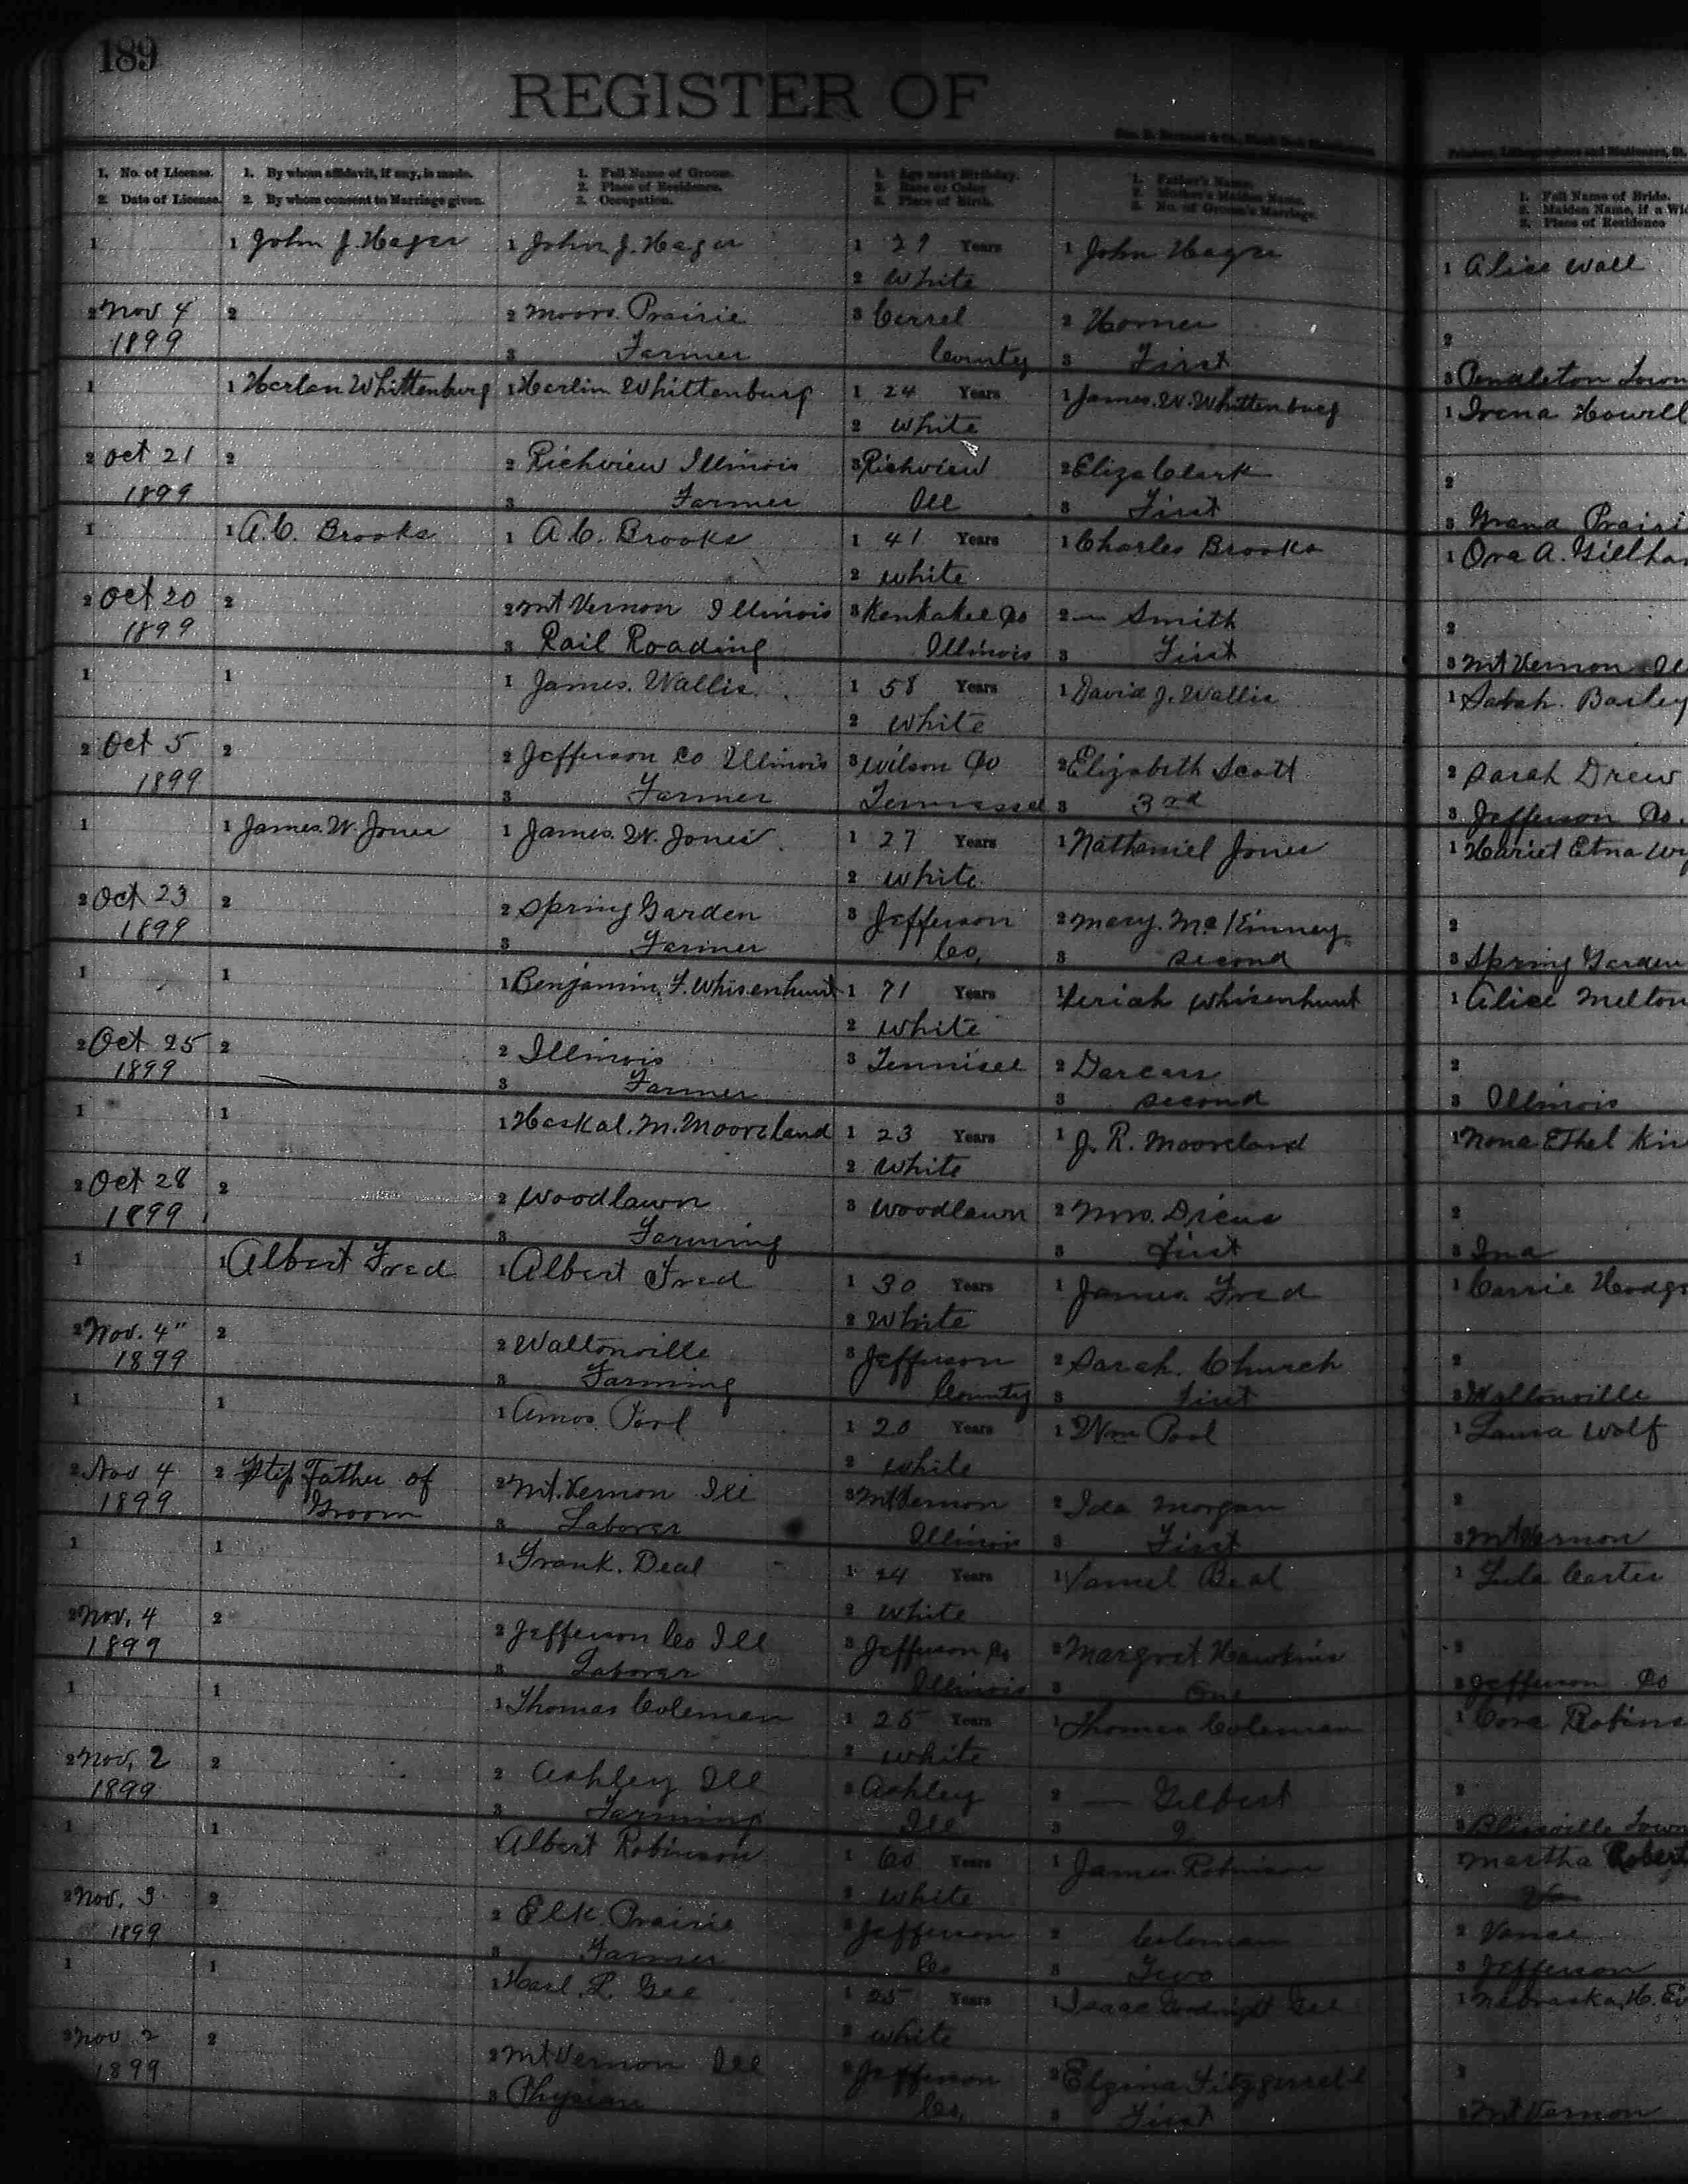 189
REGISTER OF
1. No. of License.
2. Date of License.
1. By whom affidavit, if any, is made.
2. By whom consent to Marriage given.
1. Full Name of Groom.
2. Place of Residence.
3. Occupation.
1. Age next Birthday.
2. Race or Color
3. Place of Birth.
1. Father's Name.
2. Mother's Maiden Name.
3. No. of Groom's Marriage.
1. Full Name of Bride.
2. Maiden Name, if a Wid
3. Place of Residence
1 1 John J. Hager 1 John J. Hager 1 29 Years 1 John Hager 1 Alice Wall
2 White
2 Nov 4 2 2 Moors Prairie 3 2 Horner 2
1899 3 Farmer County 3 First 3 Pendleton Town
1 1 Harlan Whittenburg 1 Harlin Whittenburg 1 24 Years 1 James. W. Whittenburg 1 Irena Howell
2 White
2 Oct 21 2 2 Richview Illinois 3 Richview 2 Eliza Clark 2
1899 3 Farmer Ill 3 First 3 Grand Prairi
1 1 A. C. Brooks 1 A. C. Brooks 1 41 Years 1 Charles Brooks 1 Ora A. Gillha
2 White
2 Oct 20 2 2 Mt Vernon Illinois 3 Kenkakee Co 2 — Smith 2
1899 3 Rail Roading Illinois 3 First 3 Mt Vernon Il
1 1 1 James. Wallis 1 58 Years 1 David J. Wallis 1 Sarah. Barley
2 White
2 Oct 5 2 2 Jefferson Co Illinois 3 Wilson Co 2 Elizabeth Scott 2 Sarah Drew
1899 3 Farmer Tennessee 3 3rd 3 Jefferson Co.
1 1 James. W. Jones 1 James. W. Jones 1 27 Years 1 Nathaniel Jones 1 Hariet Etna
2 White
2 Oct 23 2 2 Spring Garden 3 Jefferson 2 Mary. McKinney 2
1899 3 Farmer Co. 3 second 3 Spring Garden
1 1 1 Benjamin. F. Whisenhunt 1 71 Years 1 Whisenhunt 1 Alice Melton
2 White
2 Oct 25 2 2 Illinois 3 Tennisee 2 2
1899 3 Farmer 3 second 3 Illinois
1 1 1 Haskal. M. Mooreland 1 23 Years 1 J. R. Mooreland 1 Nona Ethel
2 White
2 Oct 28 2 2 Woodlawn 3 Woodlawn 2 2
1899 3 Farming 3 first 3 Ina
1 1 Albert Fred 1 Albert Fred 1 30 Years 1 James Fred 1 Carrie Hodge
2 White
2 Nov. 4" 2 2 Waltonville 3 Jefferson 2 Sarah. Church 2
1899 3 Farming County 3 first 3 Waltonville
1 1 1 Amos Pool 1 20 Years 1 Wm Pool 1 Laura Wolf
2 White
2 Nov 4 2 Step Father of 2 Mt. Vernon Ill 3 Mt Vernon 2 Ida Morgan 2
1899 Groom 3 Laborer Illinois 3 First 3 Mt Vernon
1 1 1 Frank. Deal 1 24 Years 1 1 Lula Carter
2 White
2 Nov. 4 2 2 Jefferson Co Ill 3 Jefferson Co 2 Margret Hawkins 2
1899 3 Laborer Illinois 3 One 3 Jefferson Co
1 1 1 Thomas Coleman 1 25 Years 1 Thomas Coleman 1 Cora Robins
2 White
2 Nov. 2 2 2 Ashley Ill 3 Ashley 2 — Gilbert 2
1899 3 Farming Ill 3 3 Blissville Town
1 1 1 Albert Robinson 1 60 Years 1 James Robinson 1 Martha Robert
2 White
2 Nov. 3 2 2 Elk Prairie 3 Jefferson 2 Coleman 2 Vance
1899 3 Farmer Co 3 Two 3 Jefferson
1 1 1 Gee 1 25 Years 1 Isaac Goodnight Gee 1 Nebraska, H.
2 White
2 Nov 2 2 2 Mt Vernon Ill 3 Jefferson 2 2
1899 3 Physian Co. 3 First 3 Mt Vernon